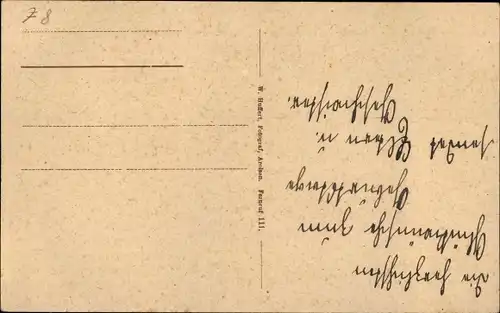 Z 8
W. Hoffert, Fotograf, Arolsen. Fernruf 111.
Die herzlichsten
Glückwünsche zum
Geburtstage
sendet
u.
Geschwister.